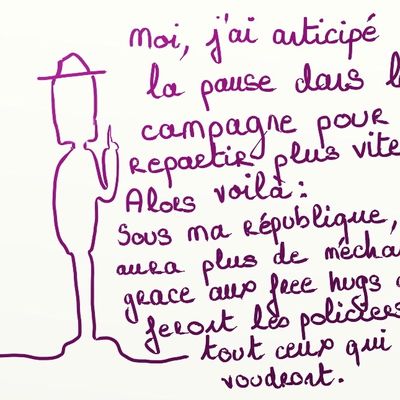 Moi, j'ai anticipé
la pause dans l
campagne pour
repartir plus vite
Alors voilà :
Sous ma république,
aura plus de mécha
grace aux free hugs
feront les policiers
tout ceux qui
voudront.